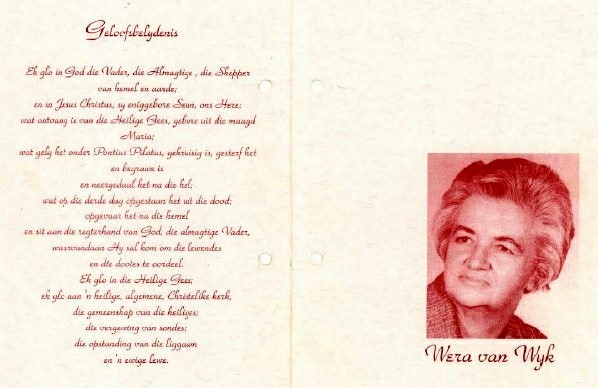 Geloofsbelydenis
Ek glo in God die Vader, die Almagtige , die Skepper
van hemel en aarde;
en in Jesus Christus, sy eniggebore Seun, ons Here;
wat ontvang is van die Heilige Gees, gebore uit die maagd
Maria;
wat gely het onder Pontius Pilatus, gekruisig is, gesterf het
en begrawe is
en neergedaal het na die hel;
wat op die derde dag opgestaan het uit die dood;
opgevaar het na die hemel
en sit aan die regterhand van God, die almagtige Vader,
waarvandaan Hy sal kom om die lewendes
en die dooies te oordeel.
Ek glo in die Heilige Gees;
ek glo aan 'n heilige, algemene, Christelike kerk,
die gemeenskap van die heiliges;
die vergewing van sondes;
die opstanding van die liggaam
en 'n ewige lewe.
Wera van Wyk